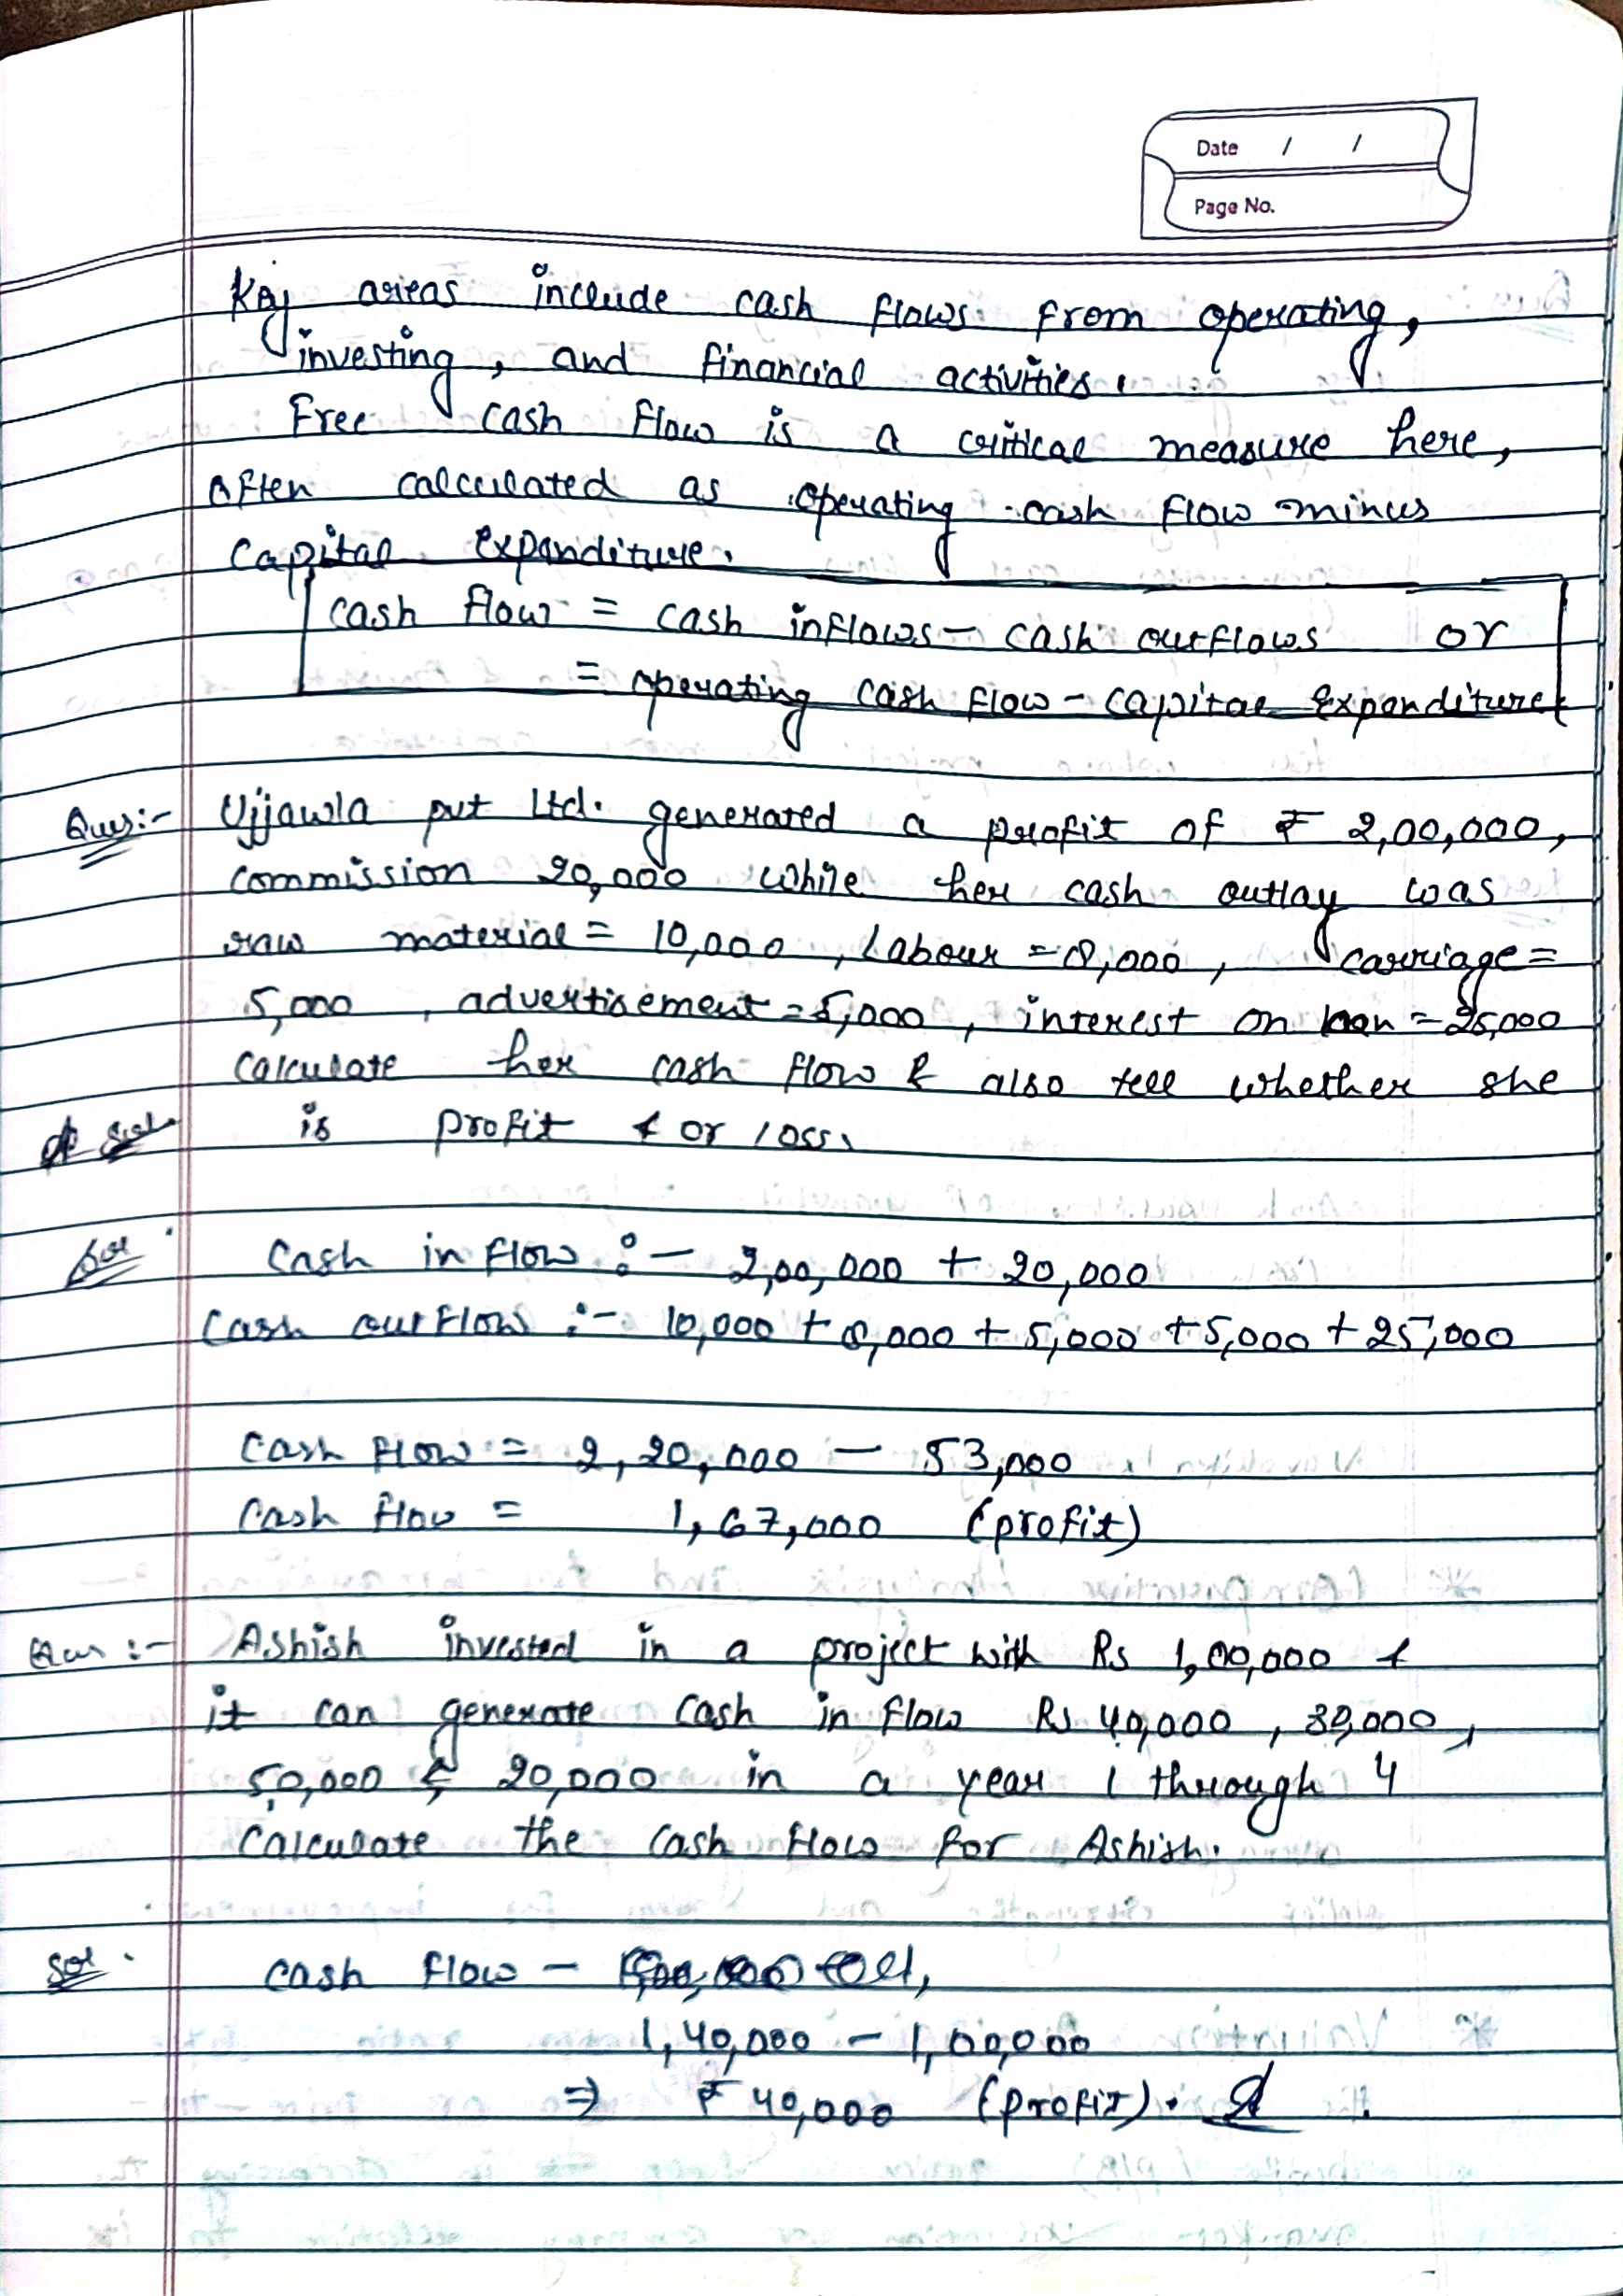 Date / /
Page No.
Key areas include cash flows from operating,
investing, and financial activities.
Free cash flow is a critical measure here,
often calculated as operating cash flow minus
Capital expenditure.
cash flow = cash inflows - cash outflows or
= operating cash flow - capital expenditure
Ques:- Ujjawla pvt Ltd. generated a profit of ₹ 2,00,000,
commission 20,000 while her cash outlay was
raw material = 10,000, Labour = 8,000, carriage =
5,000, advertisement = 5,000, interest on loan = 25,000
Calculate her cash flow & also tell whether she
is profit or loss.
Sol. Cash in flow :- 2,00,000 + 20,000
Cash outflow :- 10,000 + 8,000 + 5,000 + 5,000 + 25,000
Cash flow = 2,20,000 - 53,000
Cash flow = 1,67,000 (profit)
Ques :- Ashish invested in a project with Rs 1,00,000 &
it can generate cash in flow Rs 40,000, 30,000,
50,000 & 20,000 in a year 1 through 4
Calculate the cash flow for Ashish.
Sol. cash flow -
1,40,000 - 1,00,000
⇒ ₹ 40,000 (profit).